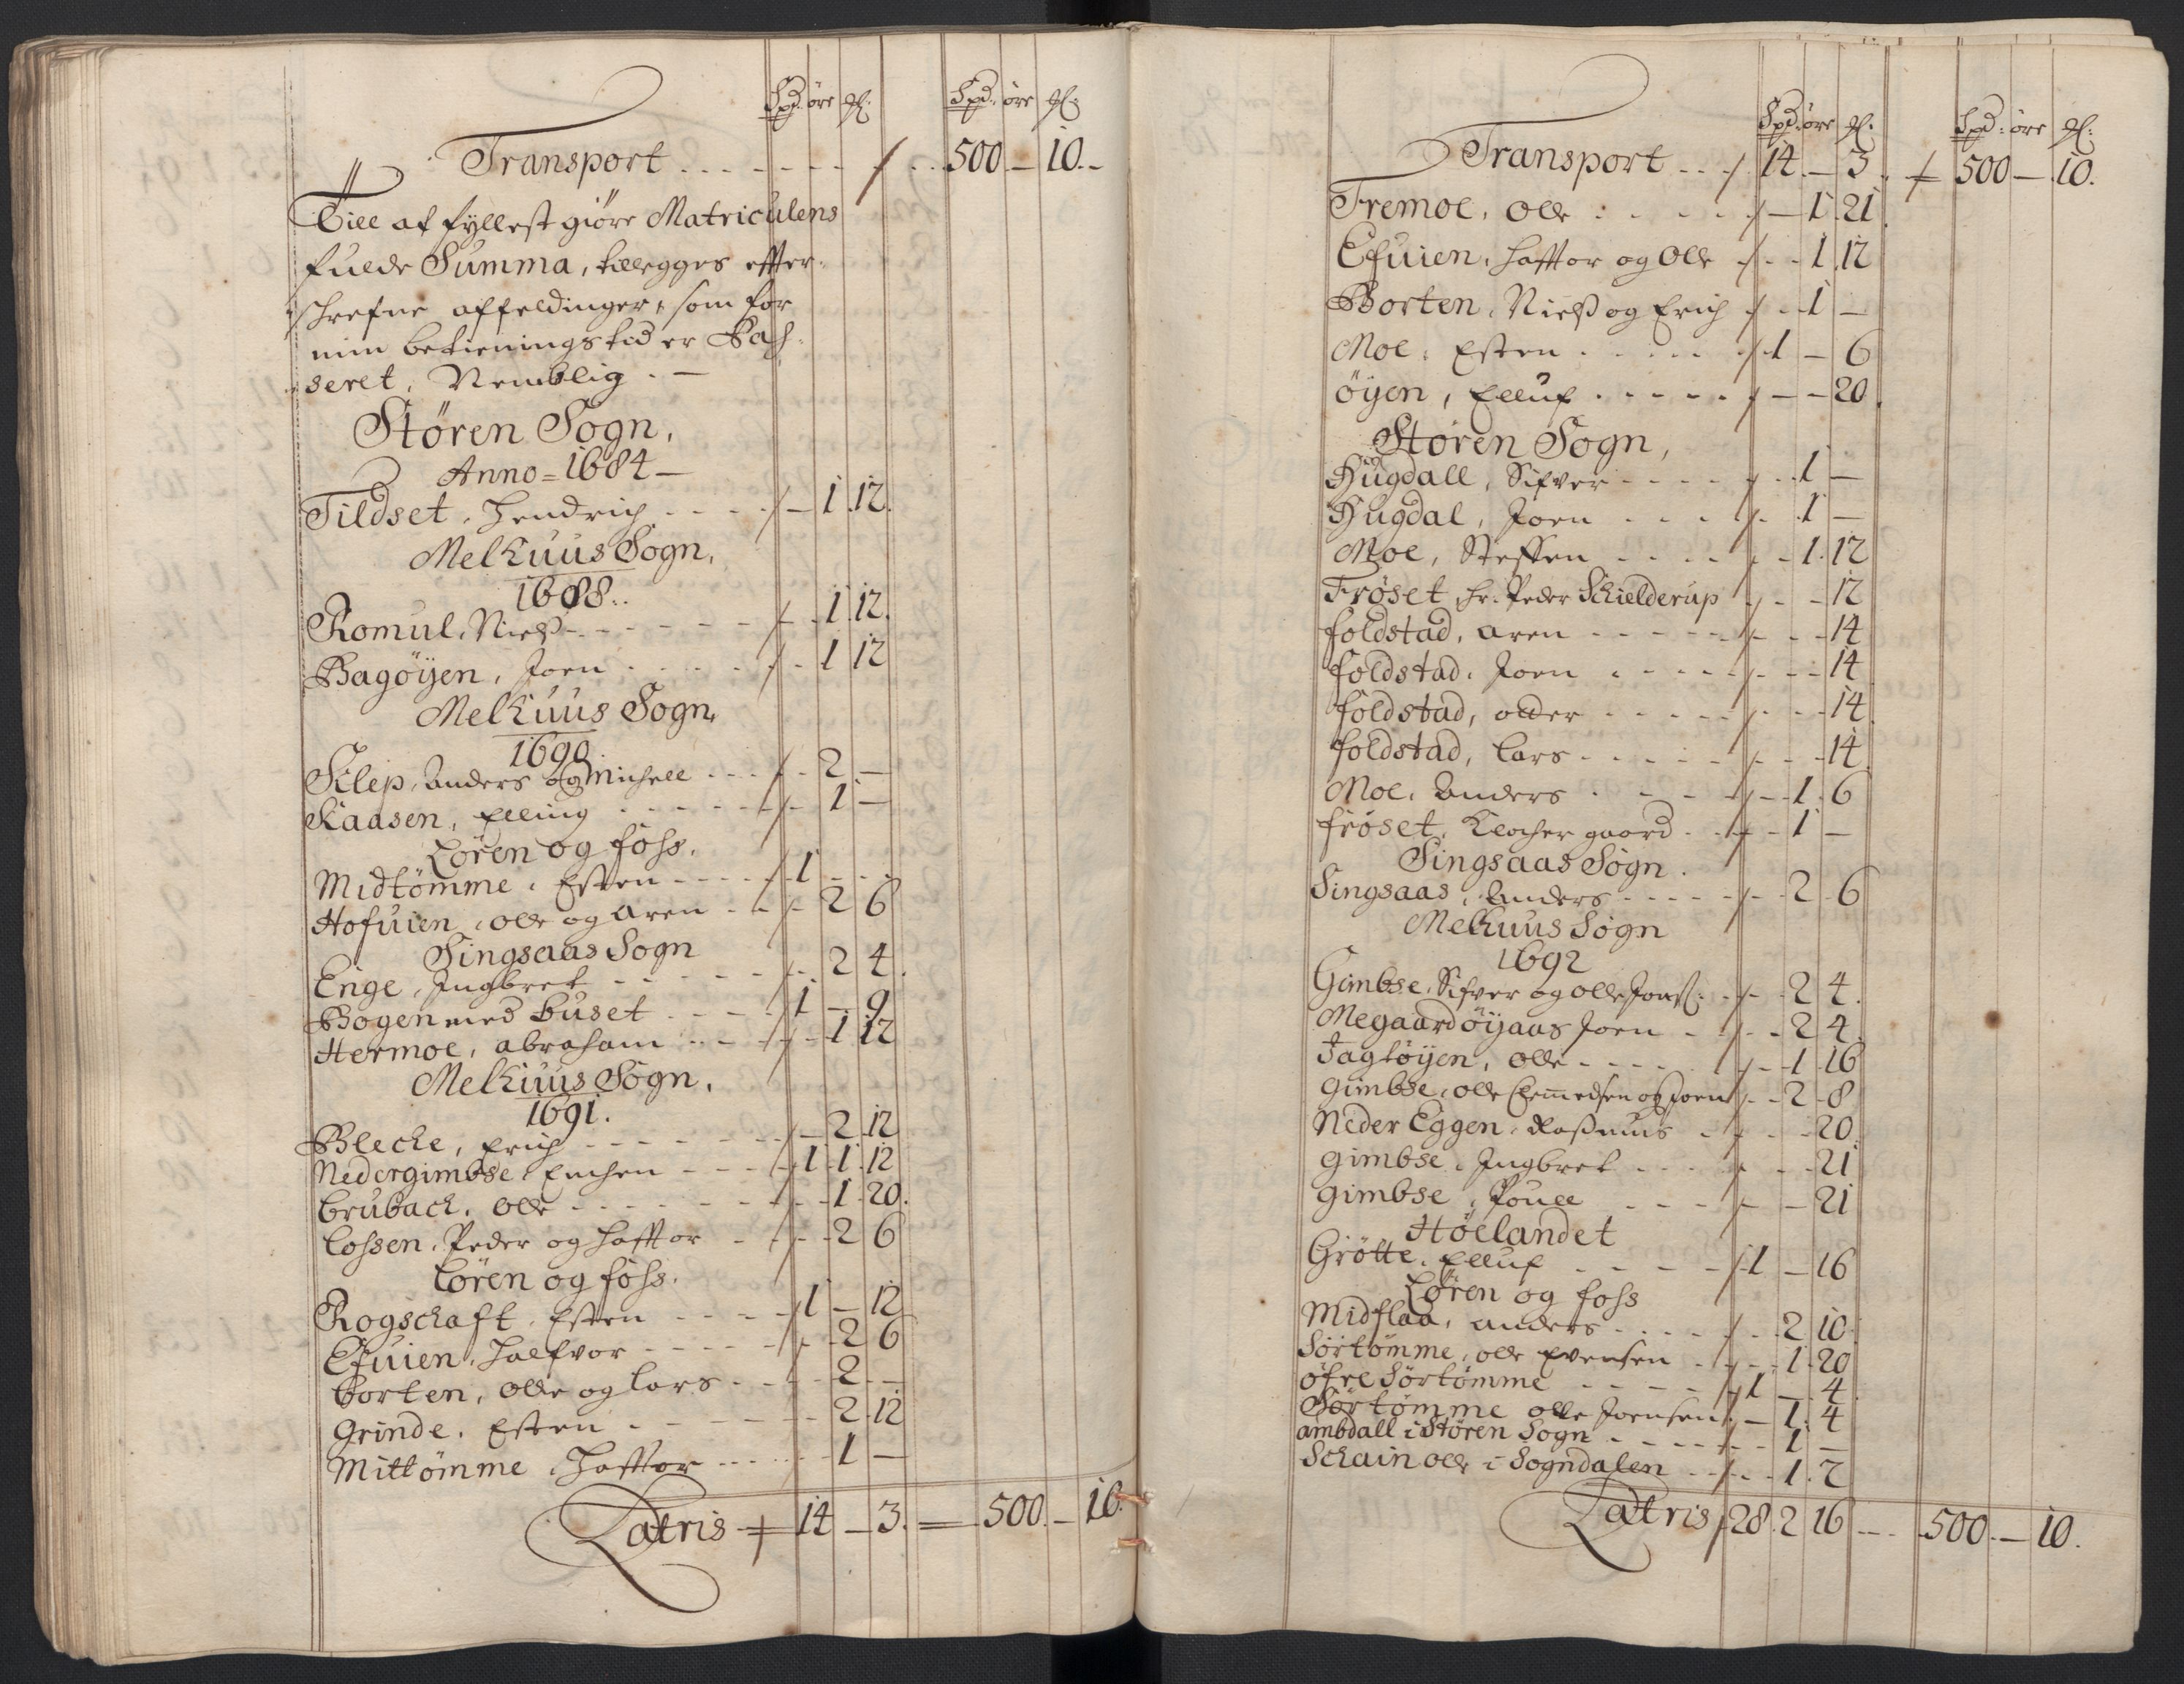 Spd: øre gl:   Spd: øre gl:
Transport . . . . . . . 500 — 10. –
Till at fyllest giøre Matriculens
fulde Summa, tillegges effter-
schrefne affeldinger, som for
min betienings tid er Pas-
seret, Nemblig . —
Støren Sogn,
Anno = 1684 —
Tildset, Hendrich . . . . — 1. 12.
Melhuus Sogn,
1688.
Romul, Nielß . . . . — 1. 12.
Bagøyen, Joen . . . . — 1 12
Melhuus Sogn,
1690.
Klep, Anders og Michell . . . — 2 —
Kaasen, Elling . . . . — 1 —
Løren og foss.
Midtømme, Esten . . . . 1 — –
Hofuien, Olle og Aren . . — 2 6
Singsaas Sogn
Enge, Ingbret . . . . — 2 4.
Bogen med Buset . . . . 1 — 9
Hermoe, Abraham . . . — 1 12
Melhuus Sogn,
1691.
Blecke, Erich . . . . — 2 12
Nedergimbse, Enchen . . . . 1 1 12
Brubach, Olle . . . . — 1 20.
Lossen, Peder og Hafftor . . — 2 6
Løren og foss.
Rogschaft, Esten . . . . 1 — 12
Efuien, Halfvor . . . . — 2 6
Borten, Olle og Lars . . . — 2 —
Grinde, Esten . . . . — 2 12
Mittømme, Hafftor . . . . — 1 —
Latris 14 — 3. = 500. — 10.
Spd: øre gl:   Spd: øre gl:
Transport . . . 14 — 3. 500 — 10.
Tremoe, Olle . . . . — 1 21
Efuien, Hafftor og Olle . . — 1. 12
Borten, Nielß og Erich . . — 1 —
Moe, Esten . . . . 1 — 6
øyen, Elluf . . . . — — 20
Støren Sogn,
Hugdall, Sifver . . . . — 1 —
Hugdal, Joen . . . . — 1 —
Moe, Steffen . . . . — 1. 12
Frøset, Hr. Peder Schielderup . . — — 12
foldstad, Aren . . . . — — 14
foldstad, Joen . . . . — — 14
foldstad, Otter . . . . — — 14
foldstad, Lars . . . . — — 14
Moe, Anders . . . . — 1. 6
frøset, Klocher gaard . . — 1 —
Singsaas Sogn.
Singsaas, Anders . . . . — 2 6
Melhuus Sogn
1692
Gimbse, Sifver og Olle Jonß: . . — 2 4.
Megaardøyaas Joen . . — 2 4
Jagtøyen, Olle . . . . — 1 16
gimbse, Olle Clemedsen og Joen — 2 8
Neder Eggen, Raßmus . . — — 20.
gimbse, Ingbret . . . . — — 21
gimbse, Pouel . . . . — — 21
Høelandet
Grøtte, Elluf . . . . 1 — 16
Løren og foss
Midflaa, Anders . . . . — 2 10
Sørtømme, Olle Evensen . . — 1. 20
øfre Sørtømme . . . . 1 — 4.
Sørtømme Olle Joensen . — 1. 4
ambdall i Støren Sogn . . . . — 1 —
Schain Olle i Sogndalen . . — 1. 2
Latris 28. 2 16 — 500. — 10.